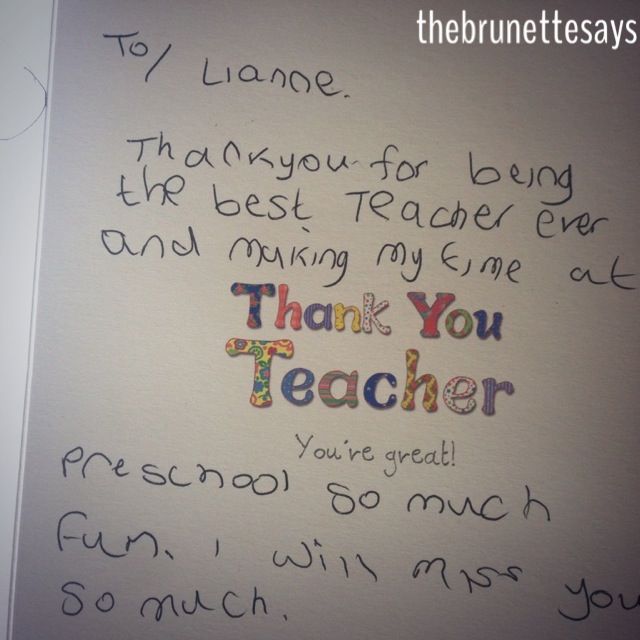 thebrunettesays
To/ Lianne.
Thankyou for being
the best Teacher ever
and making my time at
Thank You
Teacher
You're great!
preschool so much
fun. I will miss you
so much.